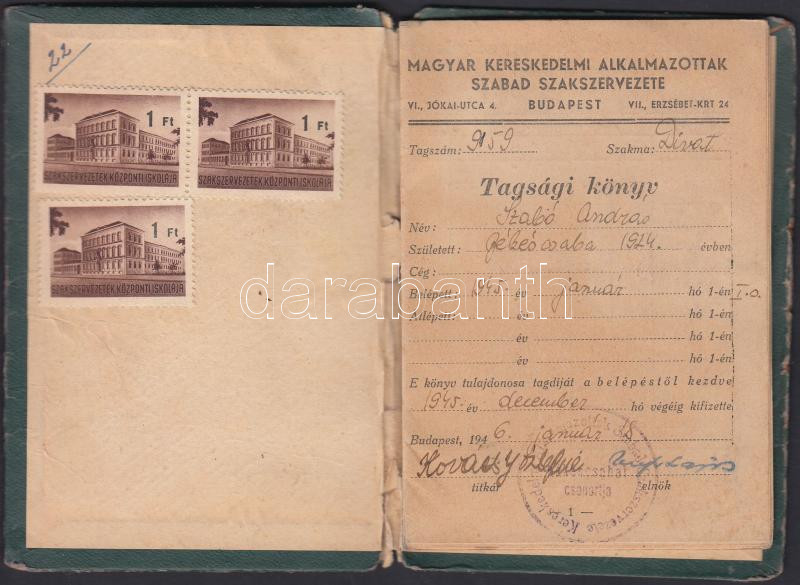 22
1 Ft
SZAKSZERVEZETEK KÖZPONTI ISKOLÁJA
1 Ft
SZAKSZERVEZETEK KÖZPONTI ISKOLÁJA
1 Ft
SZAKSZERVEZETEK KÖZPONTI ISKOLÁJA
darabanth
MAGYAR KERESKEDELMI ALKALMAZOTTAK
SZABAD SZAKSZERVEZETE
VI., JÓKAI-UTCA 4. BUDAPEST VII., ERZSÉBET-KRT 24
Tagszám: 9159 Szakma: Divat
Tagsági könyv
Név: Szabó András
Született: Békéscsaba 1924. évben
Cég:
Belépett: 1945. év január hó 1-én I. o.
Átlépett: hó 1-én
év hó 1-én
év hó 1-én
E könyv tulajdonosa tagdíját a belépéstől kezdve
1945. év december hó végéig kifizette
Budapest, 1946. január 18.
Kovács
titkár elnök
csoportja
— 1 —